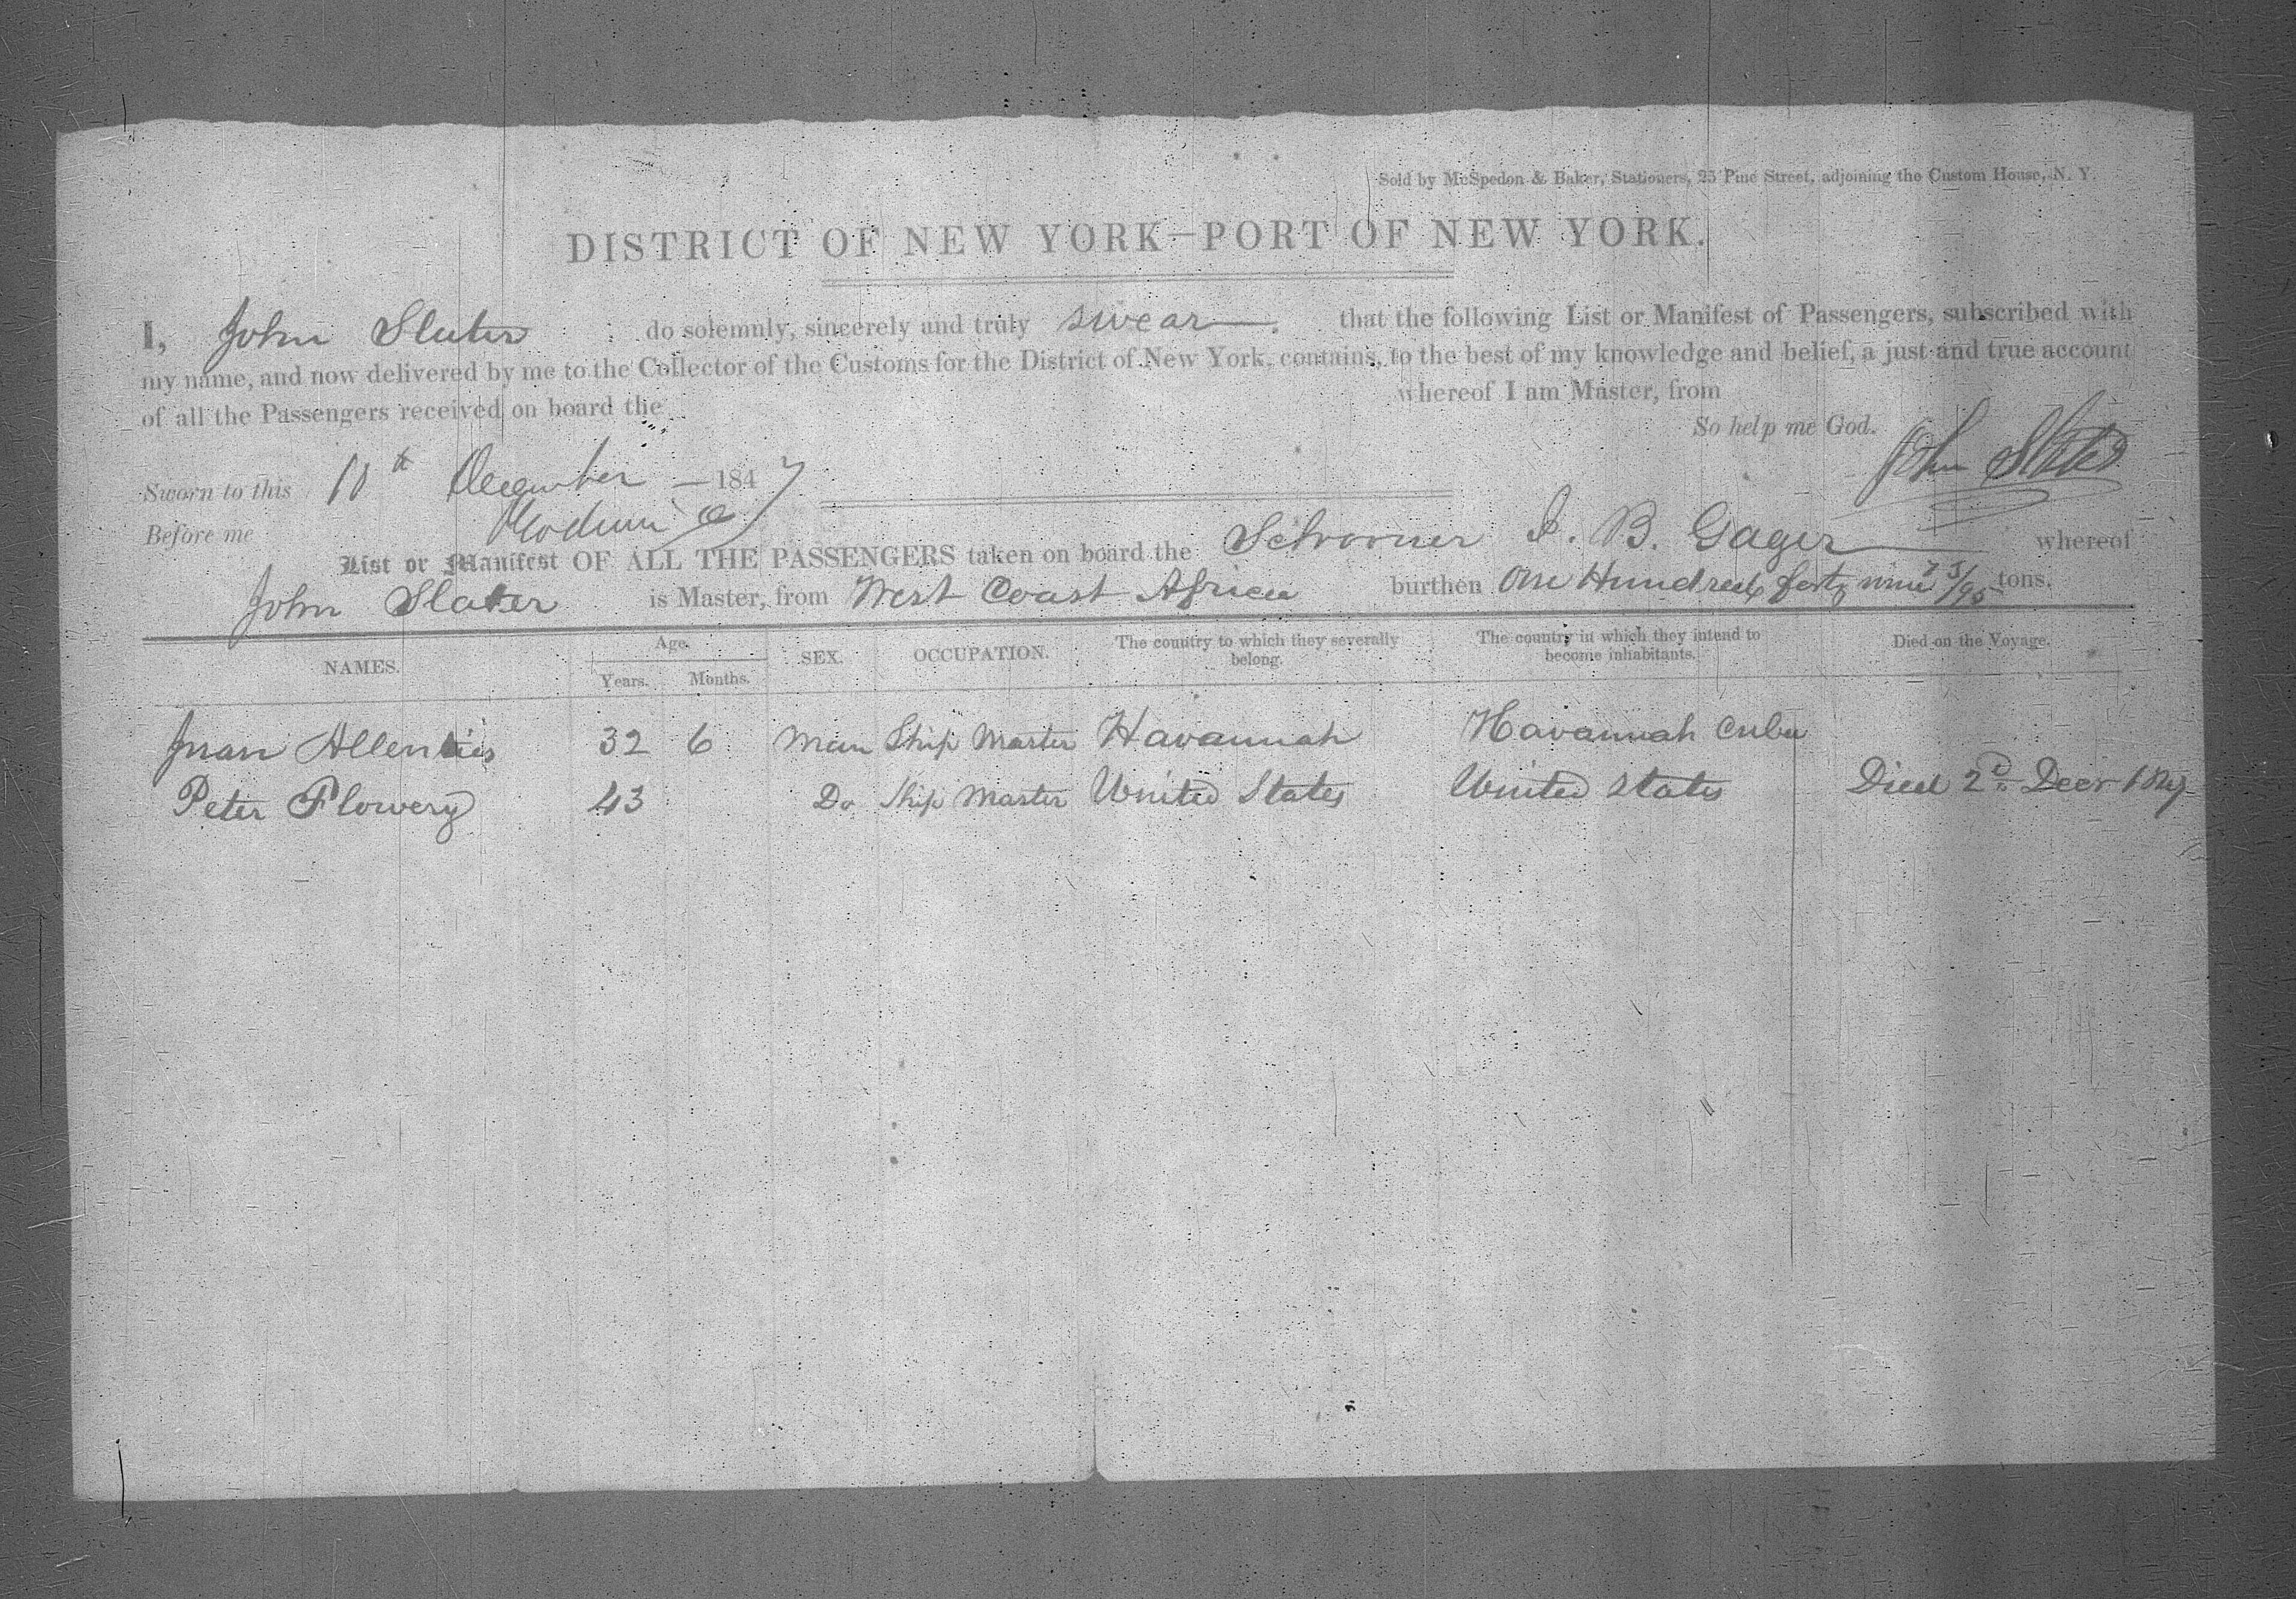 Sold by McSpedon & Baker, Stationers, 25 Pine Street, adjoining the Custom House, N. Y.
DISTRICT OF NEW YORK—PORT OF NEW YORK.
I, John Slater do solemnly, sincerely and truly swear that the following List or Manifest of Passengers, subscribed with
my name, and now delivered by me to the Collector of the Customs for the District of New York, contains, to the best of my knowledge and belief, a just and true account
of all the Passengers received on board the whereof I am Master, from
So help me God. John Slater
Sworn to this 10th December 1847
Before me
List or Manifest OF ALL THE PASSENGERS taken on board the Schooner J. B. Gager whereof
John Slater is Master, from West Coast Africa burthen One Hundred forty nine tons.
NAMES. Age. Years. Months. SEX. OCCUPATION. The country to which they severally belong. The country in which they intend to become inhabitants. Died on the Voyage.
Juan 32 6 Man Ship Master Havannah Havannah Cuba
Peter Flowery 43 Do Ship Master United States United States Died 2d Decr 1847